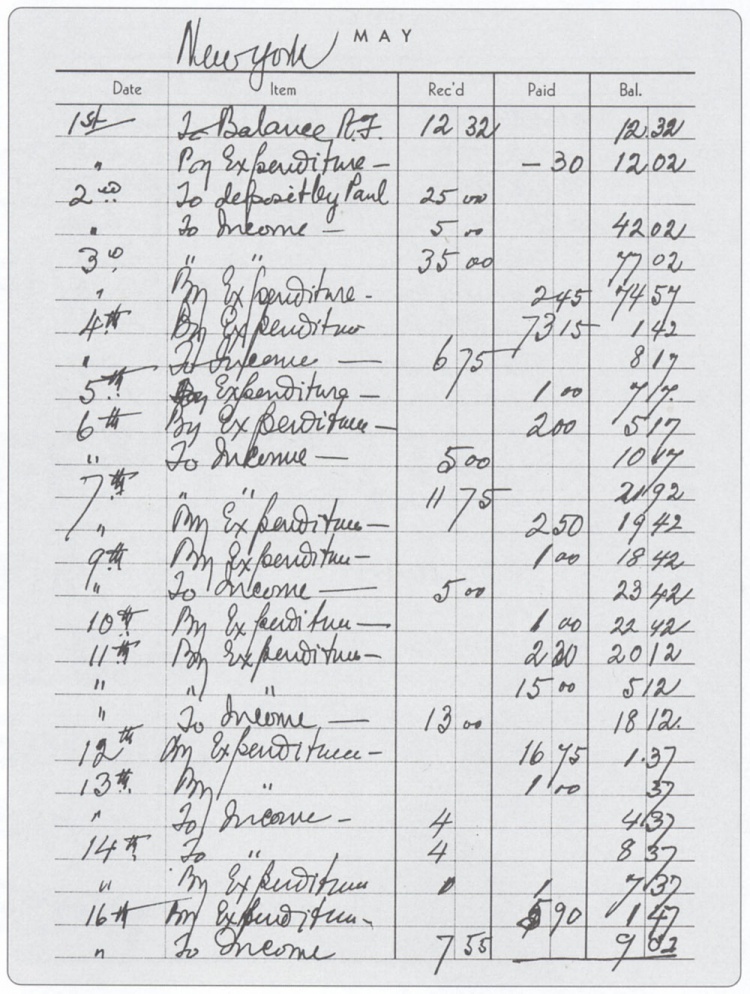 New york MAY
Date Item Rec'd Paid Bal.
1st To Balance B.F. 12 32 12.32
" By Expenditure — — 30 12 02
2nd To deposit by Paul 25 00
" To Income — 5 00 42 02
3rd " " 35 00 77 02
" By Expenditure - 2 45 74 57
4th By Expenditure 73 15 1 42
" To Income — 6 75 8 17
5th By Expenditure — 1 00 7 17
6th By Expenditure — 2 00 5 17
" To Income — 5 00 10 17
7th " " 11 75 21 92
" By Expenditure — 2 50 19 42
9th By Expenditure — 1 00 18 42
" To Income — 5 00 23 42
10th By Expenditure — 1 00 22 42
11th By Expenditure — 2 30 20 12
" " " 15 00 5 12
" To Income — 13 00 18 12.
12th By Expenditure - 16 75 1.37
13th By " 1 00 37
" To Income - 4 4 37
14th To " 4 8 37
" By Expenditure 1 7 37
16th By Expenditure - 5 90 1 47
" To Income 7 55 9 02